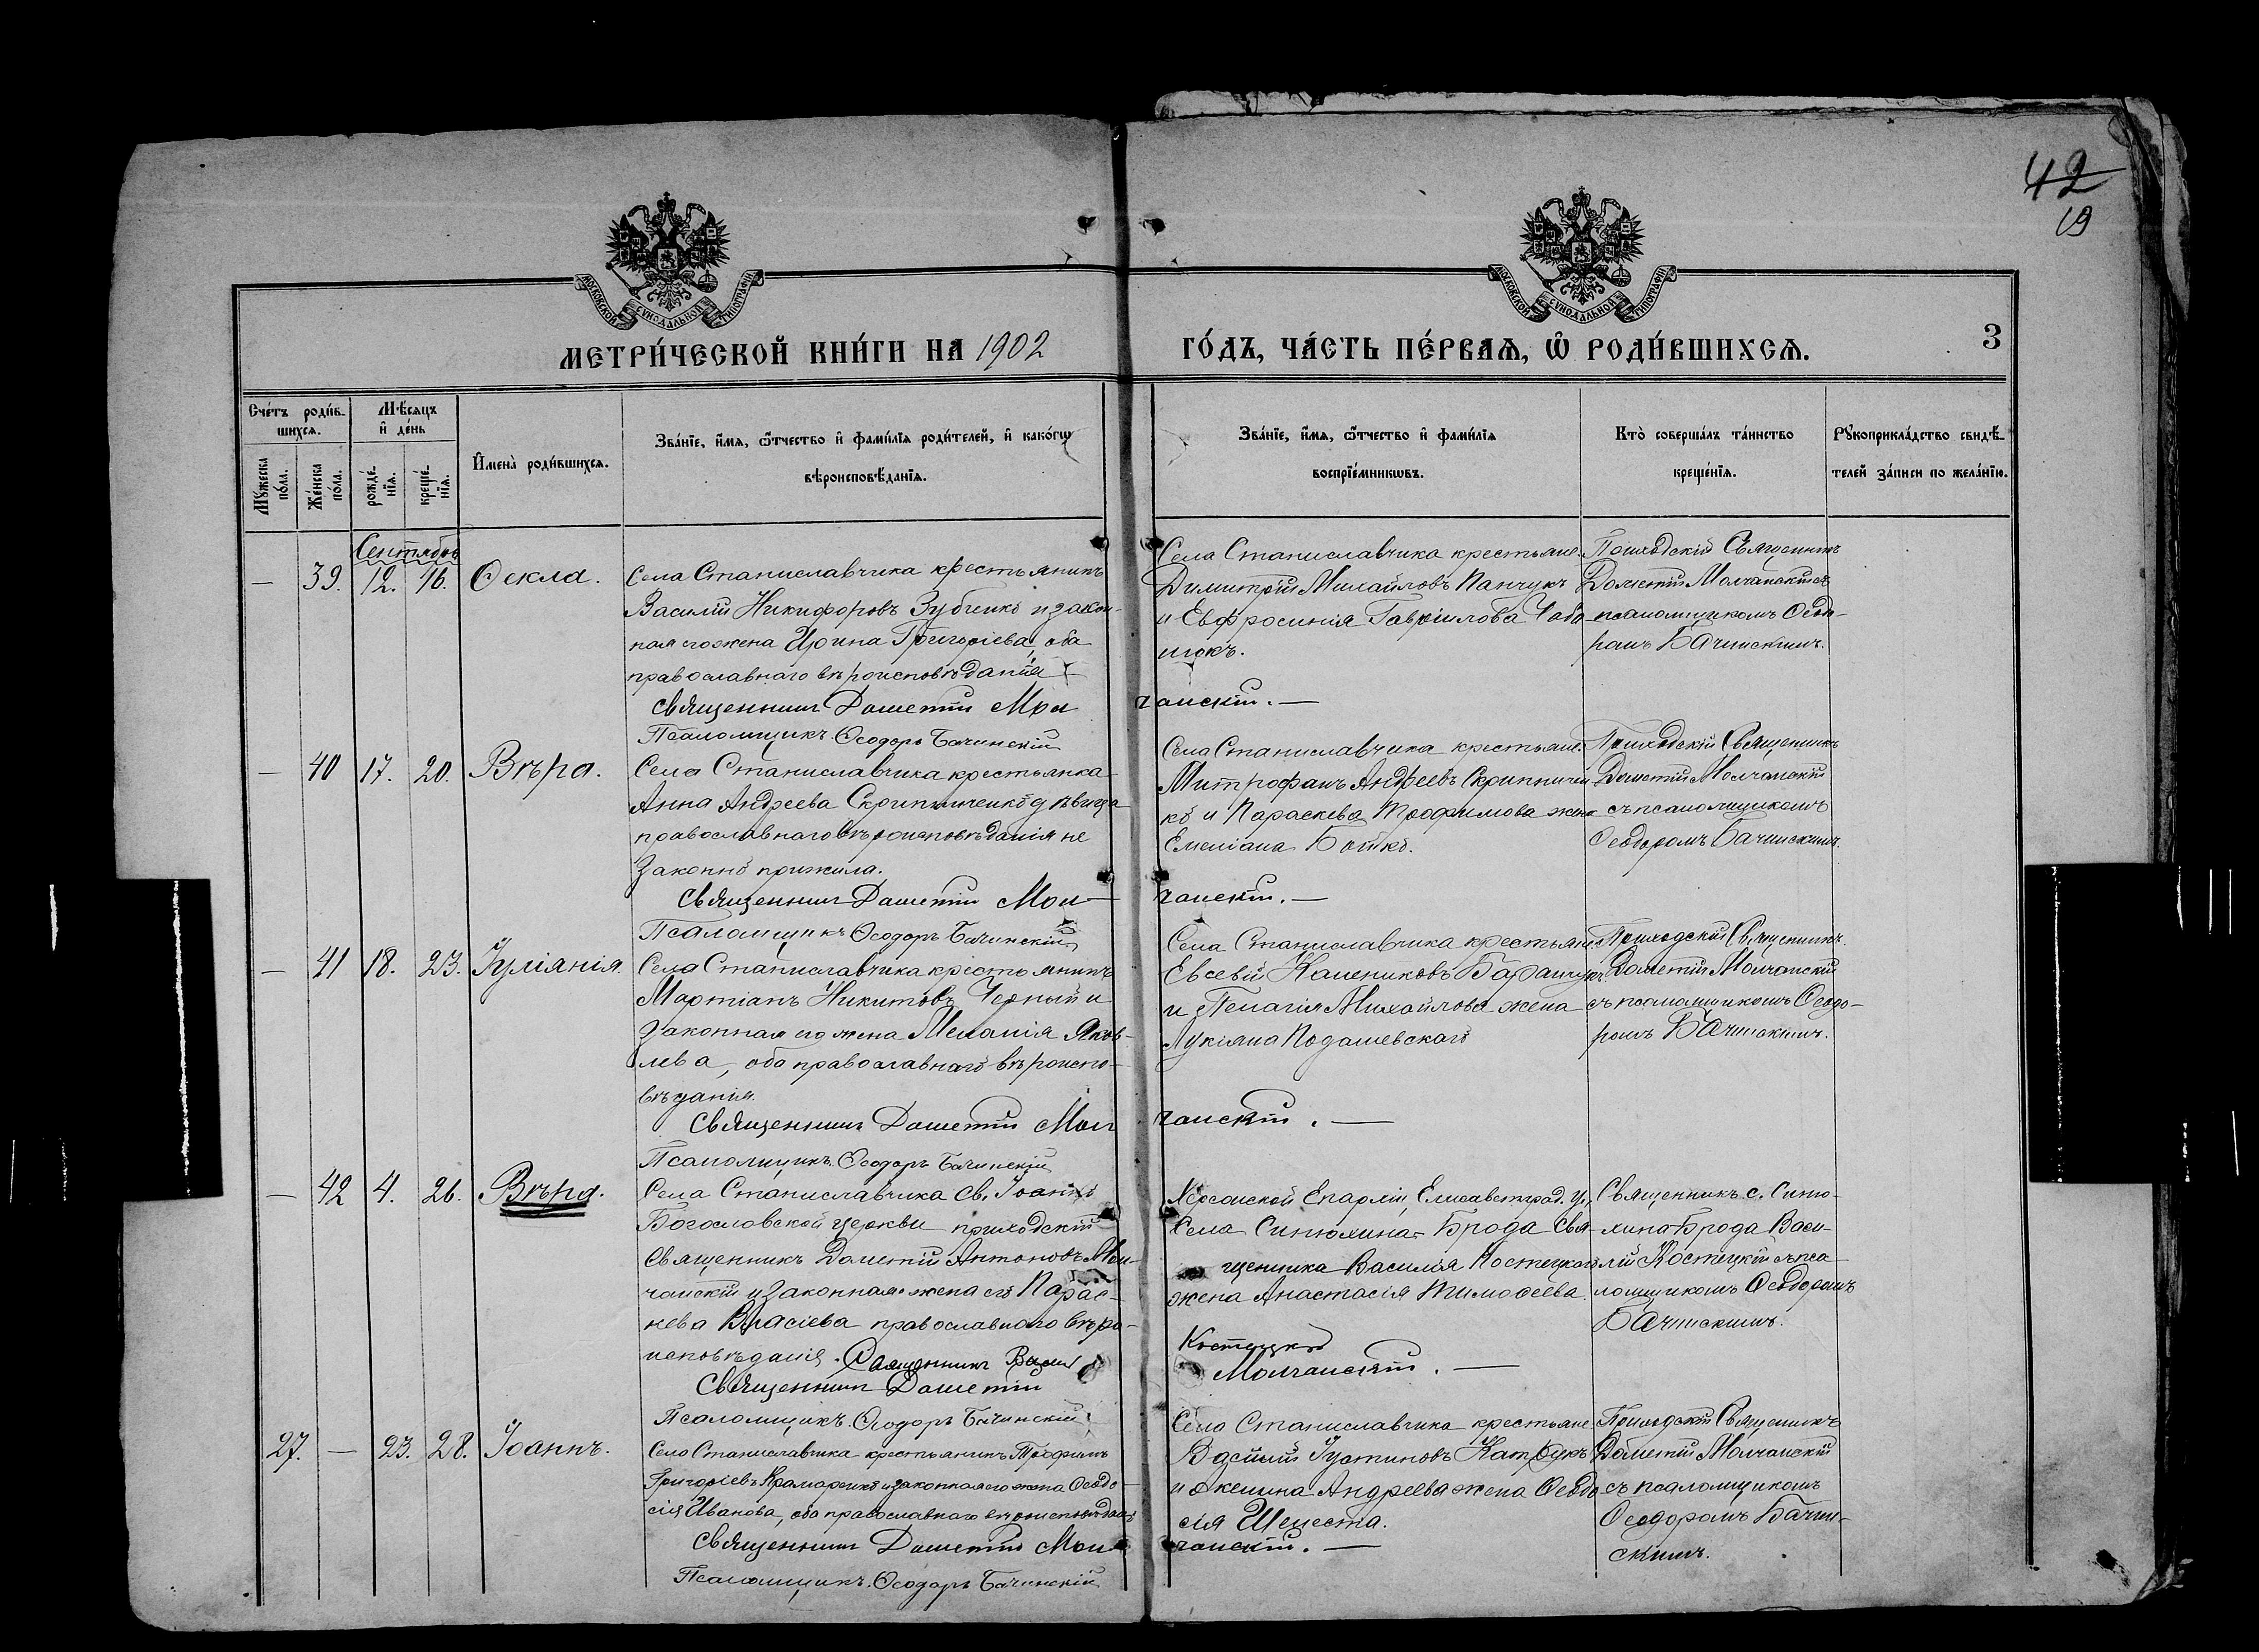 42
19
МОСКОВСКОЙ СѴНОДАЛЬНОЙ ТИПОГРАФІИ
МОСКОВСКОЙ СѴНОДАЛЬНОЙ ТИПОГРАФІИ
МЕТРИ́ЧЕСКОЙ КНИ́ГИ НА 1902
ГО́ДЪ, ЧА́СТЬ ПЕ́РВАѦ, Ѡ҆ РОДИ́ВШИХСѦ.
3
Сче́тъ роди́в-
шихсѧ.
Мꙋ́жеска по́ла.
Же́нска по́ла.
Мѣ́сяцъ
и҆ де́нь
рожде́-
нїѧ.
креще́-
нїѧ.
И҆мена̀ роди́вшихсѧ.
Зва́нїе, и҆́мѧ, ѻ҆́тчество и҆ фами́лїѧ роди́телей, и҆ како́гѡ
вѣроисповѣ́данїѧ.
Зва́нїе, и҆́мѧ, ѻ҆́тчество и҆ фами́лїѧ
воспрїе́мникѡвъ.
Кто̀ соверша́лъ та́инство
креще́нїѧ.
Рꙋкоприкла́дство свидѣ́-
телей за́писи по жела́нїю.
Сентябрь
— 39. 12. 16. Ѳекла.
Села Станиславчика крестьянинъ
Василій Никифоровъ Зубченко и закон-
ная его жена Ирина Григоріева, оба
православнаго вѣроисповѣданія
Священникъ Дометій Мол
чанскій. —
Псаломщикъ Ѳеодоръ Бачинскій
Села Станиславчика крестьяне
Димитрій Михайловъ Панчукъ
и Евфросинія Гавріилова
Приходскій Священникъ
Дометій Молчанскій съ
псаломщикомъ Ѳеодо-
ромъ Бачинскимъ.
— 40 17. 20. Вѣра.
Села Станиславчика крестьянка
Анна Андреева Скрипниченко дѣвица
православнаго вѣроисповѣданія не
законно прижила.
Священникъ Дометій Мол-
чанскій. —
Псаломщикъ Ѳеодоръ Бачинскій
Села Станиславчика крестьяне
Митрофанъ Андреевъ Скрипничен
ко и Параскева Трофимова жена
Емеліана Бойко.
Приходскій Священникъ
Дометій Молчанскій
съ псаломщикомъ
Ѳеодоромъ Бачинскимъ.
— 41 18. 23. Іуліанія.
Села Станиславчика крестьянинъ
Мартіанъ Никитовъ Черный и
законная его жена Меланія Яков-
лева, оба православнаго вѣроиспо-
вѣданія.
Священникъ Дометій Мол
чанскій. —
Псаломщикъ Ѳеодоръ Бачинскій
Села Станиславчика крестьяне
Евсевій Калениковъ Баранчукъ
и Пелагія Михайлова жена
Лукіяна Подашевскаго
Приходскій Священникъ
Дометій Молчанскій
съ псаломщикомъ Ѳеодо-
ромъ Бачинскимъ.
— 42 4. 26. Вѣра.
Села Станиславчика Св. Іоанно
Богословской церкви приходскій
Священникъ Дометій Антоновъ Мол-
чанскій и законная жена его Парас-
кева Власіева православнаго вѣро-
исповѣданія. Священникъ Васил
Костецкій
Священникъ Дометій
Молчанскій. —
Псаломщикъ Ѳеодоръ Бачинскій
Херсонской Епархіи, Елисаветград. у.,
Села Синюхина-Брода Свя-
щенника Василія Костецкаго
жена Анастасія Тимоѳеева.
Священникъ с. Синю-
хина-Брода Васи-
лій Костецкій съ пса-
ломщикомъ Ѳеодоромъ
Бачинскимъ.
27. — 23. 28. Іоаннъ.
Села Станиславчика крестьянинъ Трофимъ
Григоріевъ Крамаренко и законная его жена Ѳеодо-
сія Иванова, оба православнаго вѣроисповѣданія
Священникъ Дометій Мол
чанскій. —
Псаломщикъ Ѳеодоръ Бачинскій
Села Станиславчика крестьяне
Василій Іустиновъ
и Акилина Андреева жена Ѳеодо
сія Шелеста.
Приходскій Священникъ
Дометій Молчанскій
съ псаломщикомъ
Ѳеодоромъ Бачин-
скимъ.